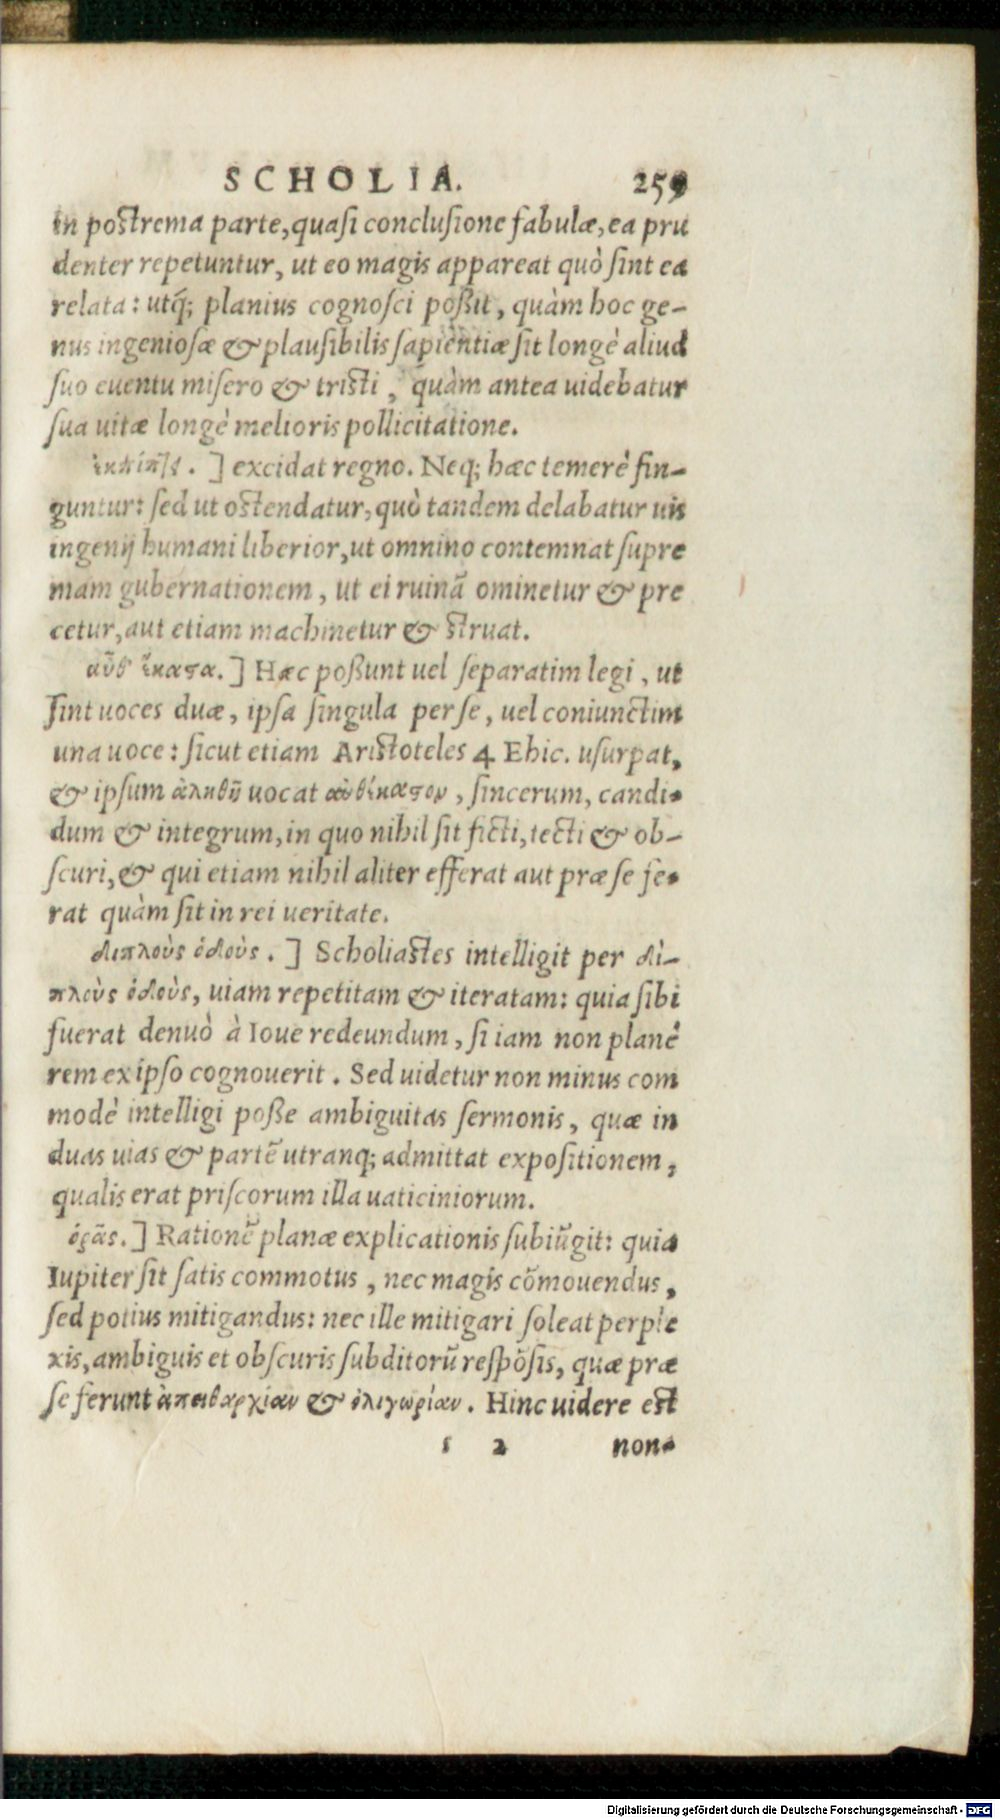 SCHOLIA. 259
in postrema parte, quasi conclusione fabulæ, ea pru
denter repetuntur, ut eo magis appareat quò sint ea
relata: utq́; planius cognosci poßit, quàm hoc ge-
nus ingeniosæ & plausibilis sapientiæ sit longè aliud
suo euentu misero & tristi, quàm antea uidebatur
sua uitæ longè melioris pollicitatione.
] excidat regno. Neq; hæc temerè fin-
guntur: sed ut ostendatur, quò tandem delabatur uis
ingenij humani liberior, ut omnino contemnat supre
mam gubernationem, ut ei ruinã ominetur & pre
cetur, aut etiam machinetur & struat.
αὖθ᾽ ἕκαϛα.] Hæc poßunt uel separatim legi, ut
sint uoces duæ, ipsa singula per se, uel coniunctim
una uoce: sicut etiam Aristoteles 4 Ehic. usurpat,
& ipsum ἀληθῆ uocat αὐθέκαϛον, sincerum, candi-
dum & integrum, in quo nihil sit ficti, tecti & ob-
scuri, & qui etiam nihil aliter efferat aut præ se fe-
rat quàm sit in rei ueritate.
διπλοὺς ὁδοὺς.] Scholiastes intelligit per δὶ-
πλοὺς ὁδοὺς, uiam repetitam & iteratam: quia sibi
fuerat denuò à Ioue redeundum, si iam non planè
rem ex ipso cognouerit. Sed uidetur non minus com
modè intelligi poße ambiguitas sermonis, quæ in
duas uias & partẽ utranq; admittat expositionem,
qualis erat priscorum illa uaticiniorum.
ὁρᾶς.] Rationẽ planæ explicationis subiũgit: quia
Iupiter sit satis commotus, nec magis cõmouendus,
sed potius mitigandus: nec ille mitigari soleat perple
xis, ambiguis et obscuris subditorũ respõsis, quæ præ
se ferunt ἀπειθαρχίαν & ὀλιγωρίαν. Hinc uidere est
s 2 non-
Digitalisierung gefördert durch die Deutsche Forschungsgemeinschaft - DFG